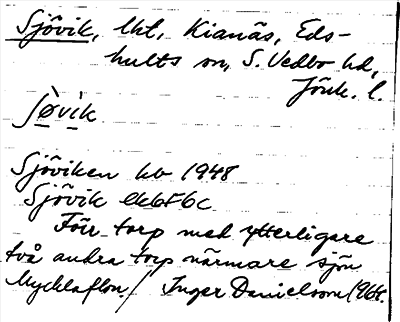 Sjövik, lht, Kianäs, Eds-
hults sn, S. Vedbo hd,
Jönk. l.
Sjöviken hb 1948
Sjövik ek6F6c
Förr torp med ytterligare
två andra torp närmare sjön
Mycklaflon. / Inger Danielsson 1968.